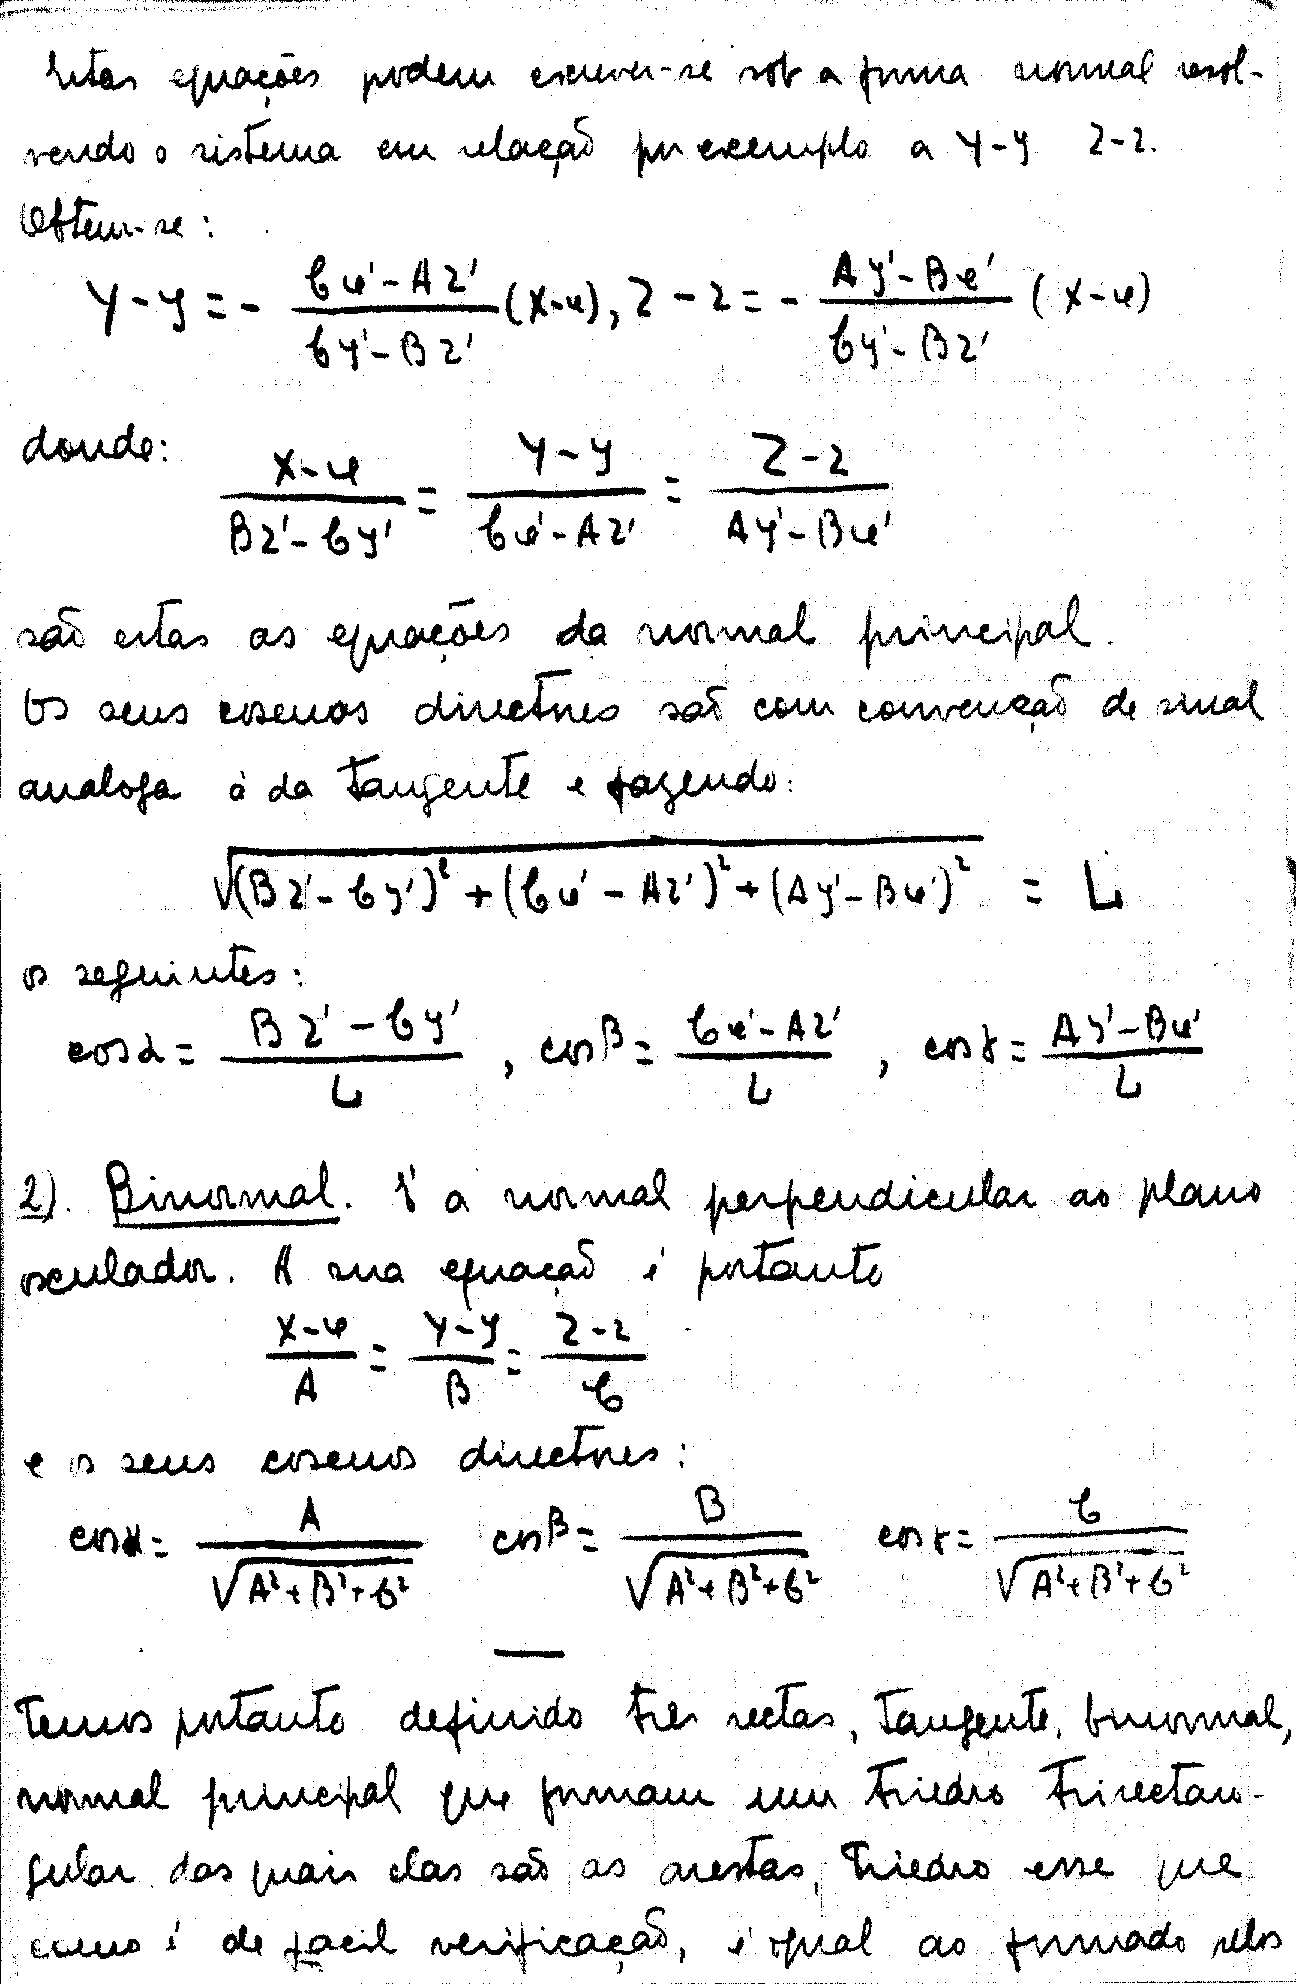 Estas equações podem escrever-se sob a forma normal resol-
vendo o sistema em relação por exemplo a Y-y Z-z.
Obtem-se:
Y-y = - \frac{Cx'-Az'}{Cy'-Bz'} (X-x), Z-z = - \frac{Ay'-Bx'}{Cy'-Bz'} (X-x)
donde: \frac{X-x}{Bz'-Cy'} = \frac{Y-y}{Cx'-Az'} = \frac{Z-z}{Ay'-Bx'}
são estas as equações da normal principal.
Os seus cosenos directores são com convenção de sinal
analoga á da tangente e fazendo:
\sqrt{(Bz'-Cy')^2+(Cx'-Az')^2+(Ay'-Bx')^2} = L
os seguintes:
cosα = \frac{Bz'-Cy'}{L}, cosβ = \frac{Cx'-Az'}{L}, cosγ = \frac{Ay'-Bx'}{L}
2). Binormal. É a normal perpendicular ao plano
osculador. A sua equação é portanto
\frac{X-x}{A} = \frac{Y-y}{B} = \frac{Z-z}{C}
e os seus cosenos directores:
cosα = \frac{A}{\sqrt{A²+B²+C²}} cosβ = \frac{B}{\sqrt{A²+B²+C²}} cosγ = \frac{C}{\sqrt{A²+B²+C²}}
Temos portanto definido três rectas, tangente, binormal,
normal principal que formam um triedro trirectan-
gular das quais elas são as arestas, triedro esse que
como é de facil verificação, é igual ao formado pelos